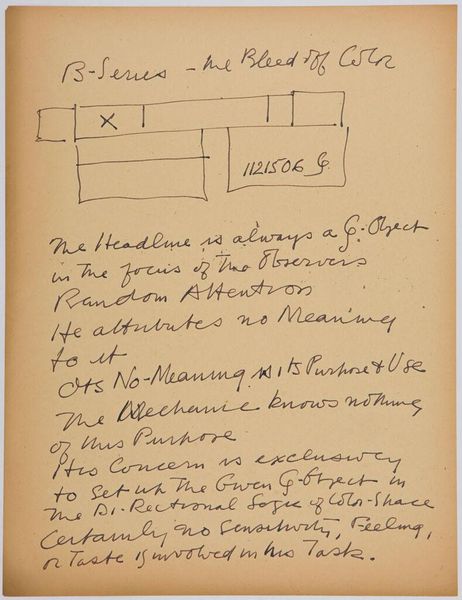 B-Series - the Bleed off Color
X
1121506 G.
The Headline is always a G-Object
in the focus of the Observers
Random Attention
He attributes no Meaning
to it
Its No-Meaning is its Purpose & Use
The Mechanic knows nothing
of this Purpose
His Concern is exclusively
to set up The Given G-Object in
the Di-Rectional Logic of Color-Space
Certainly no Sensitivity, Feeling,
or Taste is involved in his Task.